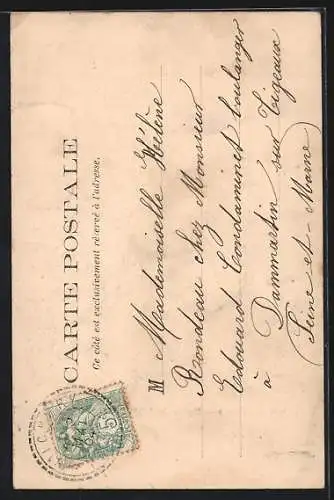 CARTE POSTALE
Ce côté est exclusivement réservé à l'adresse.
M Mademoiselle Hélène
Rondeau chez Monsieur
Edouard Condaminet boulanger
à Dammartin sur Tigeaux
Seine et Marne
5